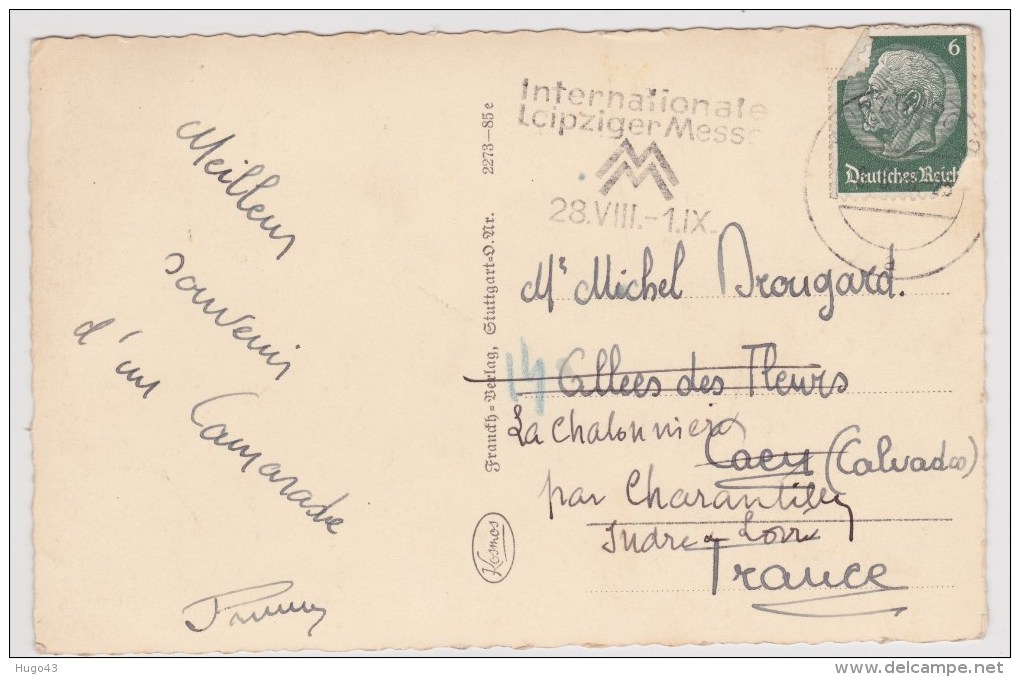 Meilleur
souvenir
d'un Camarade
Franckh=Verlag, Stuttgart=O. Nr. 2273—85 e
Kosmos
Internationale
Leipziger Messe
28.VIII.-1.IX.
6
Deutsches Reich
Mr Michel Drougard.
14 Allees des Fleurs
La Chalonniere
Caen (Calvados)
par Charantilly
Indre a Loire
France
Hugo43
delcampe.net